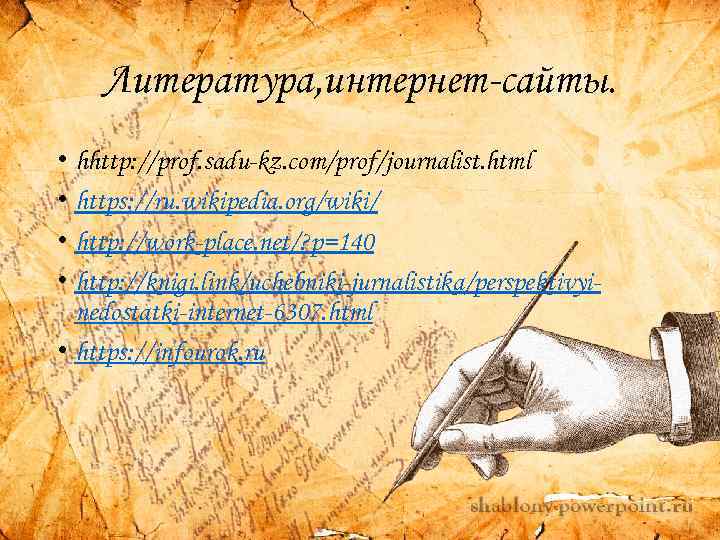 Литература,интернет-сайты.
• hhttp: //prof. sadu-kz. com/prof/journalist. html
• https: //ru. wikipedia. org/wiki/
• http: //work-place. net/? p=140
• http: //knigi. link/uchebniki-jurnalistika/perspektivyi-
nedostatki-internet-6307. html
• https: //infourok. ru
shablony-powerpoint. ru